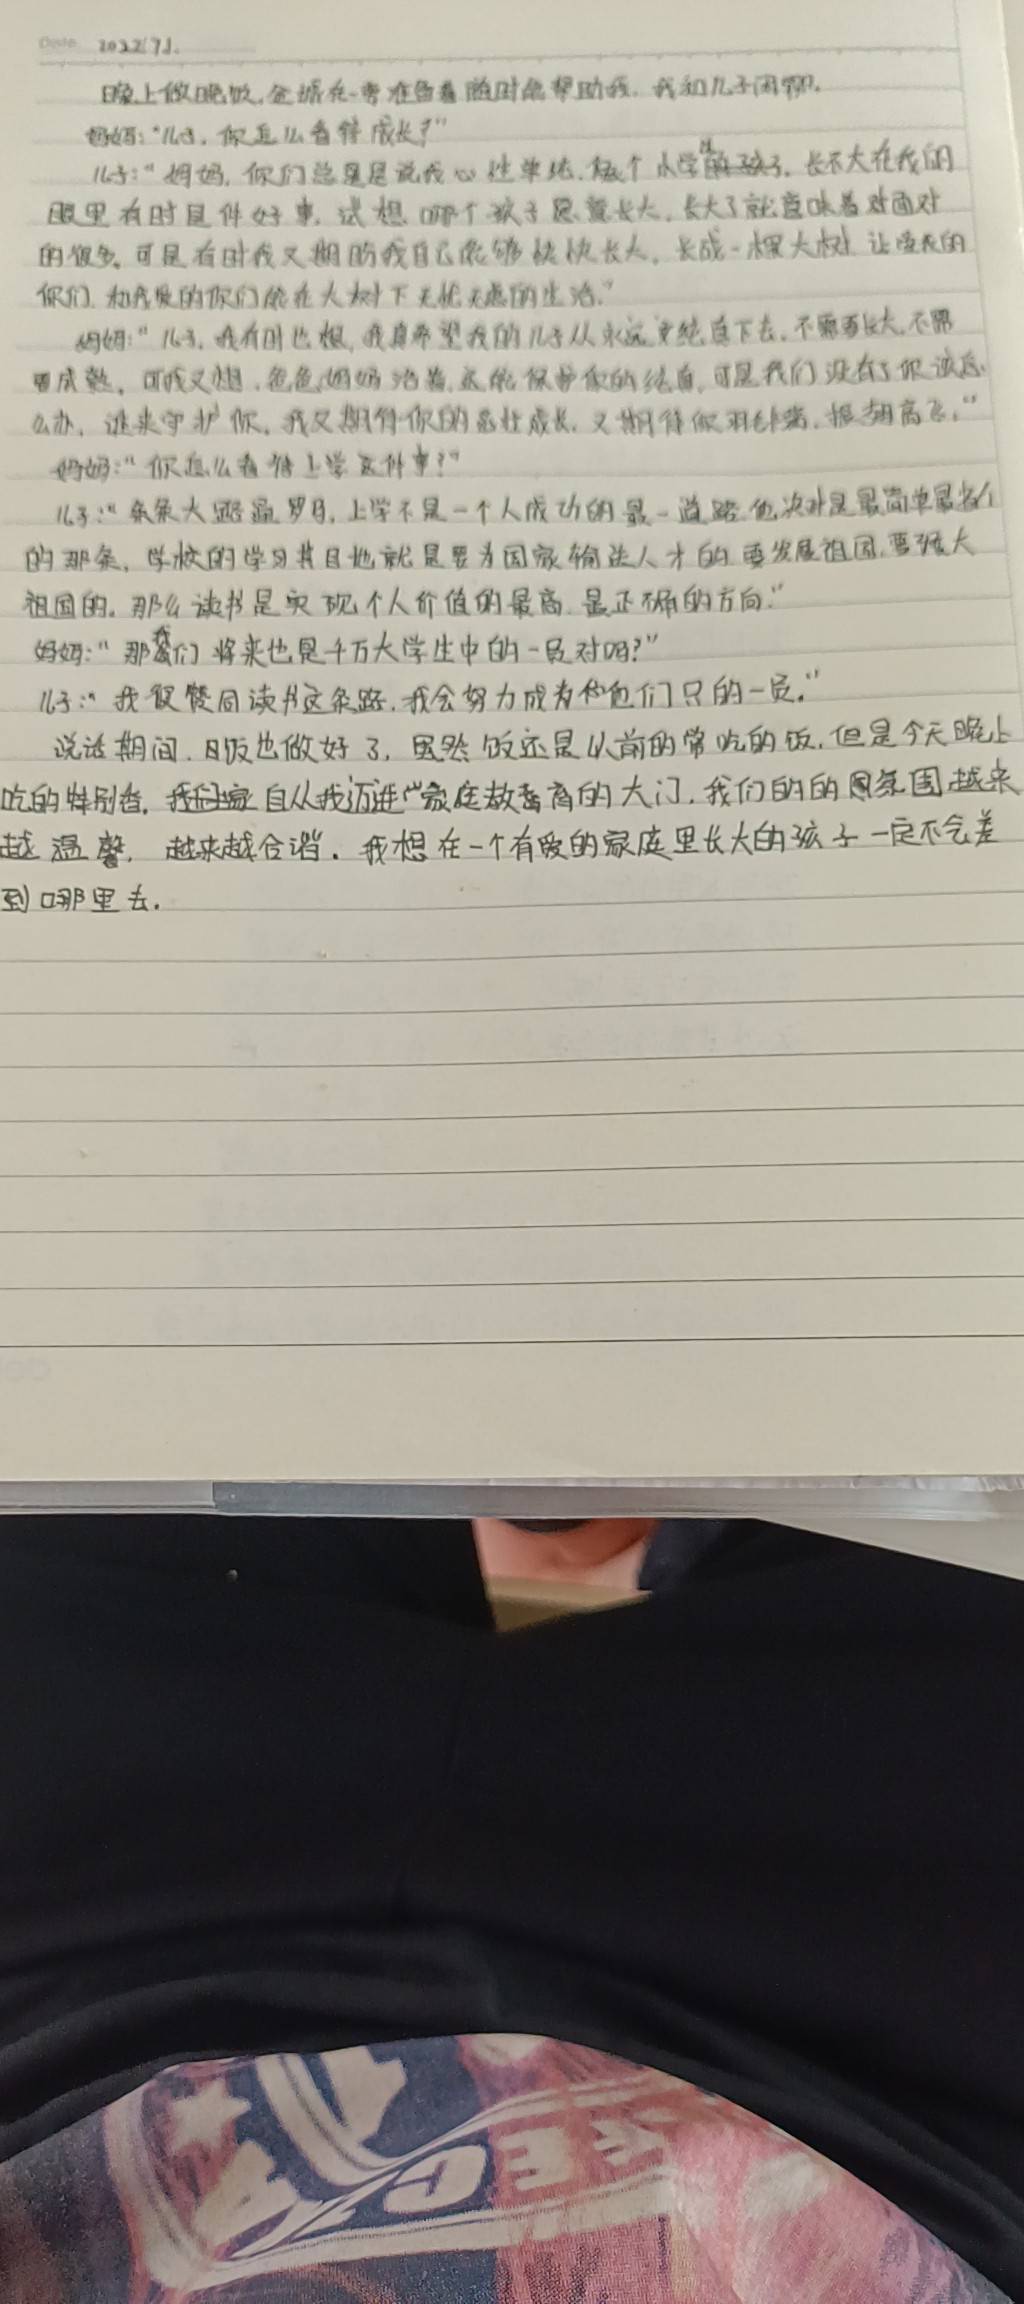 Date 2022.7.1.
晚上做晚饭,爸爸在一旁准备着随时能帮助我,我和儿子闲聊。
妈妈:“儿子,你怎么看待成长?”
儿子:“妈妈,你们总是是说我心性单纯,像个小学生,长不大在我的
眼里有时是件好事,试想哪个孩子愿意长大,长大了就意味着对面对
的很多。可是有时我又期盼我自己能够快快长大,长成一棵大树,让爱我的
你们和我爱的你们能在大树下无忧无虑的生活。”
妈妈:“儿子,我有时也想,我真希望我的儿子从永远 纯真下去,不需要长大,不需
要成熟,可我又想,爸爸妈妈活着,还能保护你的纯真,可是我们没有了你该怎
么办,谁来守护你,我又期待你的茁壮成长,又期待你羽 ,振翅高飞。”
妈妈:“你怎么看待上学这件事?”
儿子:“条条大路通罗马,上学不是一个人成功的 一道路,他决对是最简单最省心
的那条,学校的学习其目地就是要为国家输送人才的,要发展祖国,要强大
祖国的。那么读书是实现个人价值的最高、最正确的方向。”
妈妈:“那我们将来也是千万大学生中的一员对吗?”
儿子:“我很赞同读书这条路,我会努力成为他们只的一员。”
说话期间,晚饭也做好了,虽然饭还是以前的常吃的饭,但是今天晚上
吃的特别香,我们家自从我迈进广家庭教育的大门,我们的的氛围越来
越温馨,越来越合谐。我想在一个有爱的家庭里长大的孩子一定不会差
到哪里去。